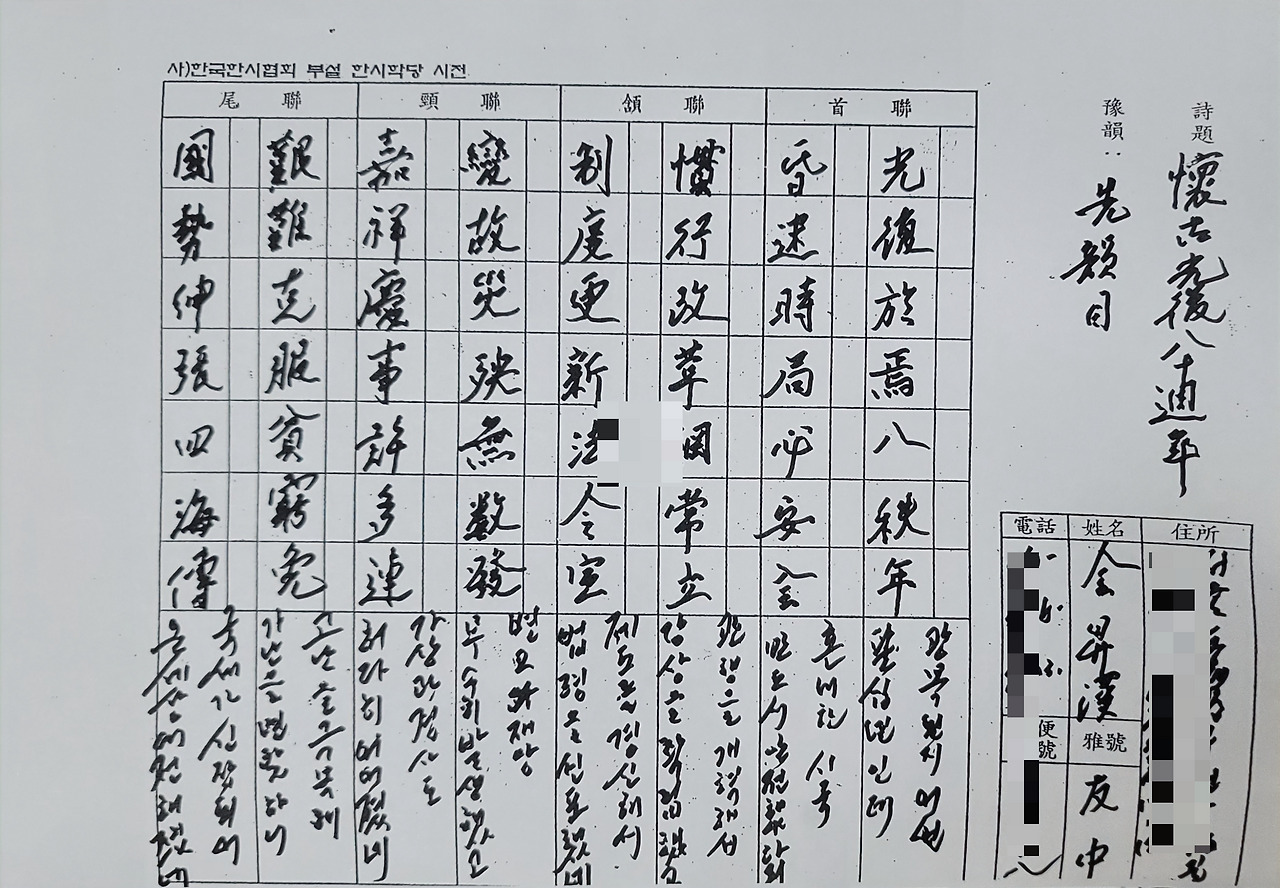 사)한국한시협회 부설 한시학당 시전
詩題 懷古光復八十週年
豫韻: 先韻目
首聯
頷聯
頸聯
尾聯
光復於焉八秩年
昏迷時局必安全
慣行改革 常立
制度更新法令宣
變故災殃無數發
嘉祥慶事許多連
艱難克服貧窮免
國勢伸張四海傳
광복된지 어언
팔십년인데
혼미한 시국
반드시 안전해야
관행을 개혁해서
강상을 확립했고
제도를 경신해서
법령을 선포했네
변고와 재앙
무수히 발생했고
가상과 경사도
허다히 이어졌네
고난을 극복해
가난을 면했으니
국세가 신장되어
온 세상에 전해졌네
住所
姓名
金昇漢
雅號
友中
電話
便號